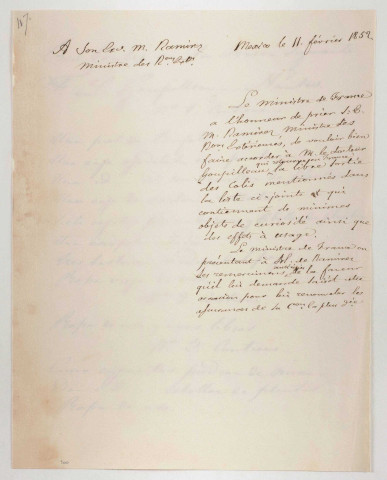 117.
A Son Exc. M. Ramirez
Ministre des Rons Extres
Mexico le 11. février 1852
Le Ministre de France
a l'honneur de prier S. E.
M. Ramirez Ministre des
Rons Extérieures, de vouloir bien
faire accorder à M. le docteur
qui retourne en France
la libre sortie
des Colis mentionnés dans
la liste ci-jointe et qui
contiennent de minimes
objets de curiosité ainsi que
des effets à usage.
Le ministre de France en
présentant à M. de Ramirez
ses remerciments de la faveur
qu'il lui demande saisit cette
occasion pour lui renouveler les
assurances de sa Con la plus disée